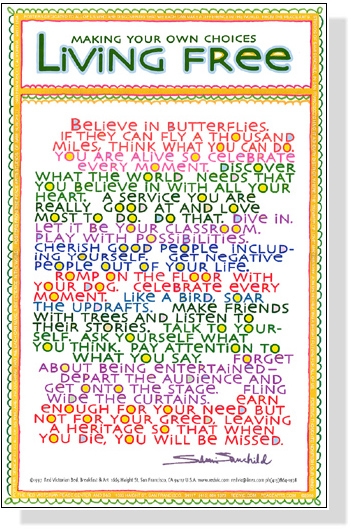 MAKING YOUR OWN CHOICES
LIVING FREE
BELIEVE IN BUTTERFLIES.
IF THEY CAN FLY A THOUSAND
MILES, THINK WHAT YOU CAN DO.
YOU ARE ALIVE SO CELEBRATE
EVERY MOMENT. DISCOVER
WHAT THE WORLD NEEDS THAT
YOU BELIEVE IN WITH ALL YOUR
HEART. A SERVICE YOU ARE
REALLY GOOD AT AND LOVE
MOST TO DO. DO THAT. DIVE IN.
LET IT BE YOUR CLASSROOM.
PLAY WITH POSSIBILITIES.
CHERISH GOOD PEOPLE INCLUD-
ING YOURSELF. GET NEGATIVE
PEOPLE OUT OF YOUR LIFE.
ROMP ON THE FLOOR WITH
YOUR DOG. CELEBRATE EVERY
MOMENT. LIKE A BIRD, SOAR
THE UPDRAFTS. MAKE FRIENDS
WITH TREES AND LISTEN TO
THEIR STORIES. TALK TO YOUR-
SELF. ASK YOURSELF WHAT
YOU THINK. PAY ATTENTION TO
WHAT YOU SAY. FORGET
ABOUT BEING ENTERTAINED—
DEPART THE AUDIENCE AND
GET ONTO THE STAGE. FLING
WIDE THE CURTAINS. EARN
ENOUGH FOR YOUR NEED BUT
NOT FOR YOUR GREED. LEAVING
A HERITAGE SO THAT WHEN
YOU DIE, YOU WILL BE MISSED.
Sami Sunchild
©1997 Red Victorian Bed, Breakfast & Art 1665 Haight St. San Francisco, CA 94117 U.S.A.